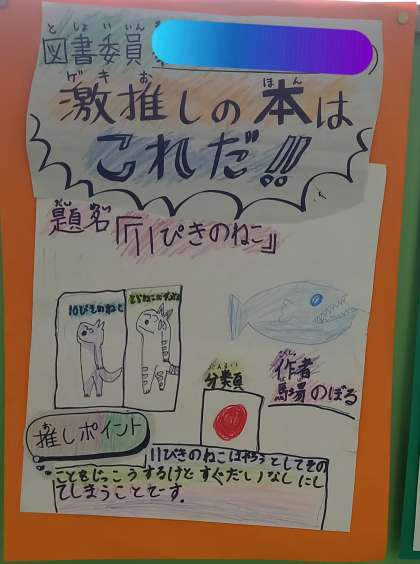 としょいいん
図書委員
ゲキお ほん
激推しの本は
これだ!!
だいめい
題名『11ぴきのねこ』
10ぴきのねこ
とらねこたいしょう
ぶんるい
分類
さくしゃ
作者
馬場のぼる
お
推しポイント
11ぴきのねこはやろうとしてその
ことをじっこうするけどすぐだいなしにし
てしまうことです.